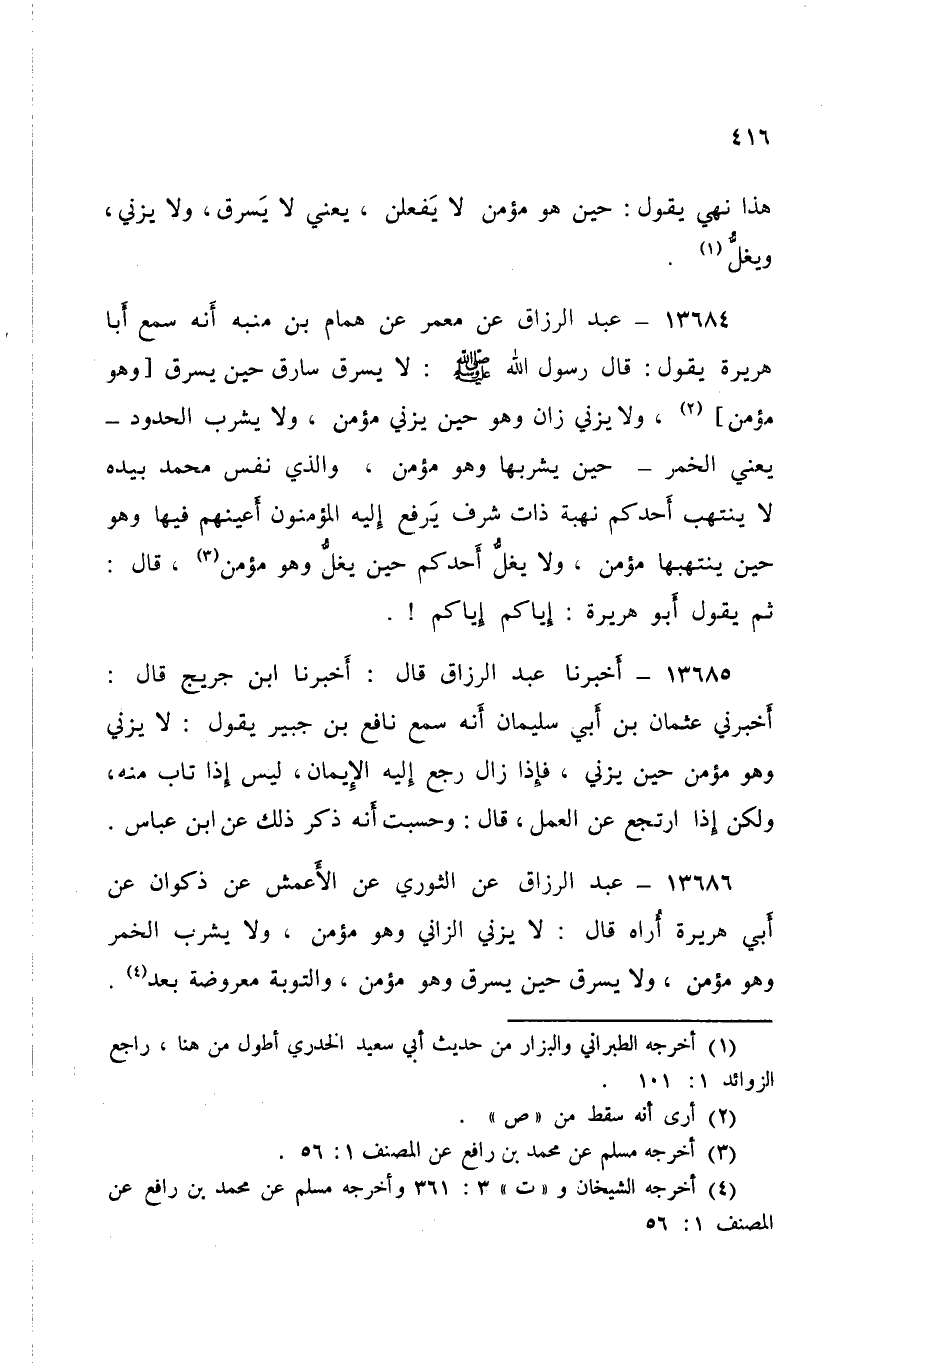 ٤١٦
هذا نهي يقول : حين هو مؤمن لا يَفعلن ، يعني لا يَسرق ، ولا يزني ،
ويغلُّ (١) .
١٣٦٨٤ – عبد الرزاق عن معمر عن همام بن منبه أنه سمع أبا
هريرة يقول : قال رسول الله ﷺ : لا يسرق سارق حين يسرق [وهو
مؤمن] (٢) ، ولا يزني زان وهو حين يزني مؤمن ، ولا يشرب الحدود –
يعني الخمر – حين يشربها وهو مؤمن ، والذي نفس محمد بيده
لا ينتهب أحدكم نهبة ذات شرف يَرفع إليه المؤمنون أعينهم فيها وهو
حين ينتهبها مؤمن ، ولا يغلُّ أحدكم حين يغلُّ وهو مؤمن(٣) ، قال :
ثم يقول أبو هريرة : إياكم إياكم ! .
١٣٦٨٥ – أخبرنا عبد الرزاق قال : أخبرنا ابن جريج قال :
أخبرني عثمان بن أبي سليمان أنه سمع نافع بن جبير يقول : لا يزني
وهو مؤمن حين يزني ، فإذا زال رجع إليه الإيمان ، ليس إذا تاب منه ،
ولكن إذا ارتجع عن العمل ، قال : وحسبت أنه ذكر ذلك عن ابن عباس .
١٣٦٨٦ – عبد الرزاق عن الثوري عن الأعمش عن ذكوان عن
أبي هريرة أُراه قال : لا يزني الزاني وهو مؤمن ، ولا يشرب الخمر
وهو مؤمن ، ولا يسرق حين يسرق وهو مؤمن ، والتوبة معروضة بعد(٤) .
(١) أخرجه الطبراني والبزار من حديث أبي سعيد الخدري أطول من هنا ، راجع
الزوائد ١ : ١٠١ .
(٢) أرى أنه سقط من « ص » .
(٣) أخرجه مسلم عن محمد بن رافع عن المصنف ١ : ٥٦ .
(٤) أخرجه الشيخان و « ت » ٣ : ٣٦١ وأخرجه مسلم عن محمد بن رافع عن
المصنف ١ : ٥٦